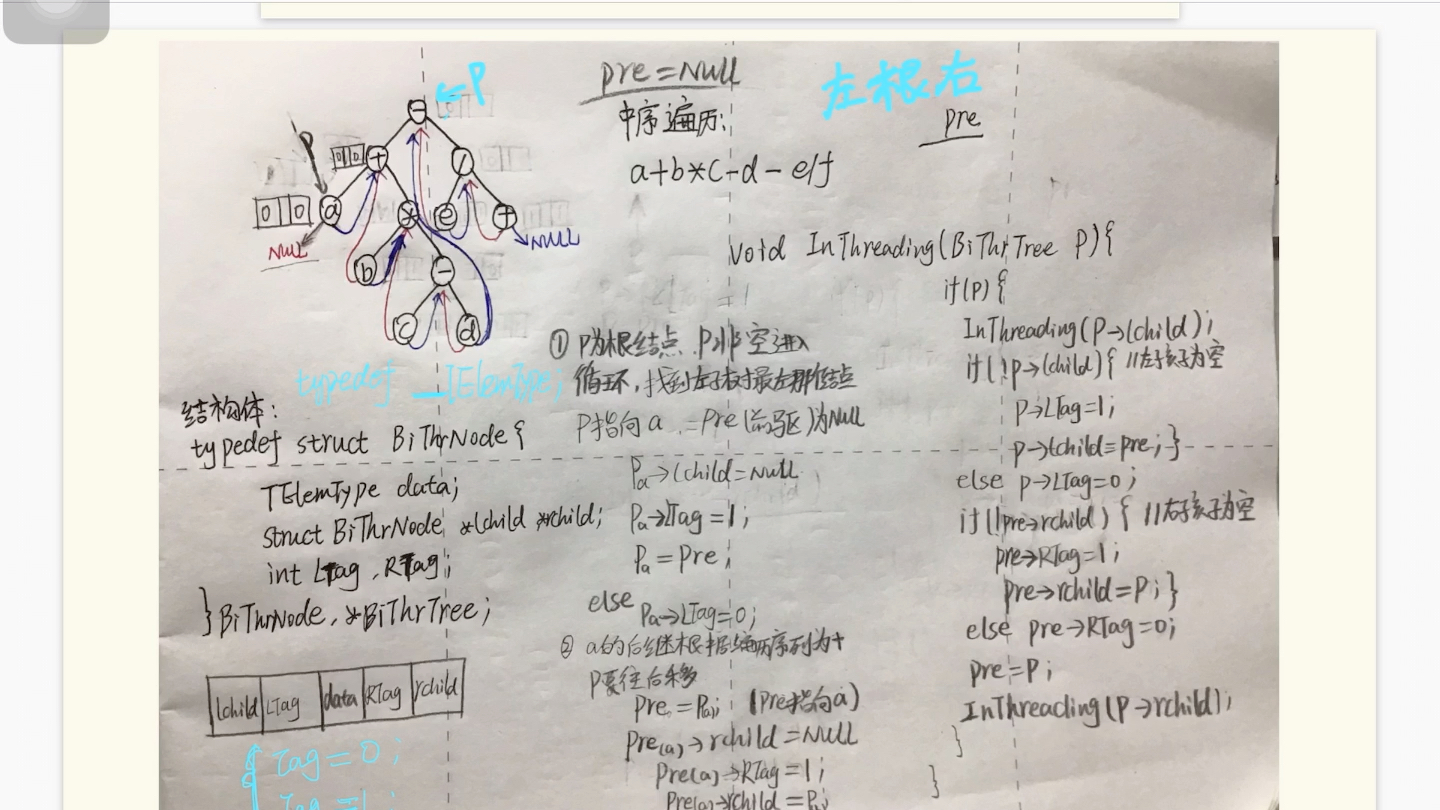 P
pre=NULL
左根右
中序遍历:
pre
a+b*c-d-e/f
P
-
0 0
+
/
0 0
a
*
e
f
NULL
NULL
b
-
c
d
void InThreading(BiThrTree P){
if(P){
InThreading(P→lchild);
if(!p→lchild){ //左子孩子为空
P→LTag=1;
p→lchild=pre;}
else p→LTag=0;
if(!pre→rchild){ //右子孩子为空
pre→RTag=1;
pre→rchild=P;}
else pre→RTag=0;
pre=P;
InThreading(P→rchild);
}
}
① P为根结点 P非空进入
循环,找到左子树最左那个结点
P指向a .=Pre(前驱)为NULL
Pa→lchild=NULL
Pa→LTag=1;
Pa=Pre;
else
Pa→LTag=0;
② a的后继根据遍历序列为+
P要往后移
Pre.=P(a); (Pre指向a)
Pre(a)→rchild=NULL
Pre(a)→RTag=1;
Pre(a)→rchild=P
typedef __TElemType;
结构体:
typedef struct BiThrNode{
TElemType data;
struct BiThrNode *lchild *rchild;
int LTag,RTag;
}BiThrNode,*BiThrTree;
lchild LTag data RTag rchild
Tag=0;
Tag=1;